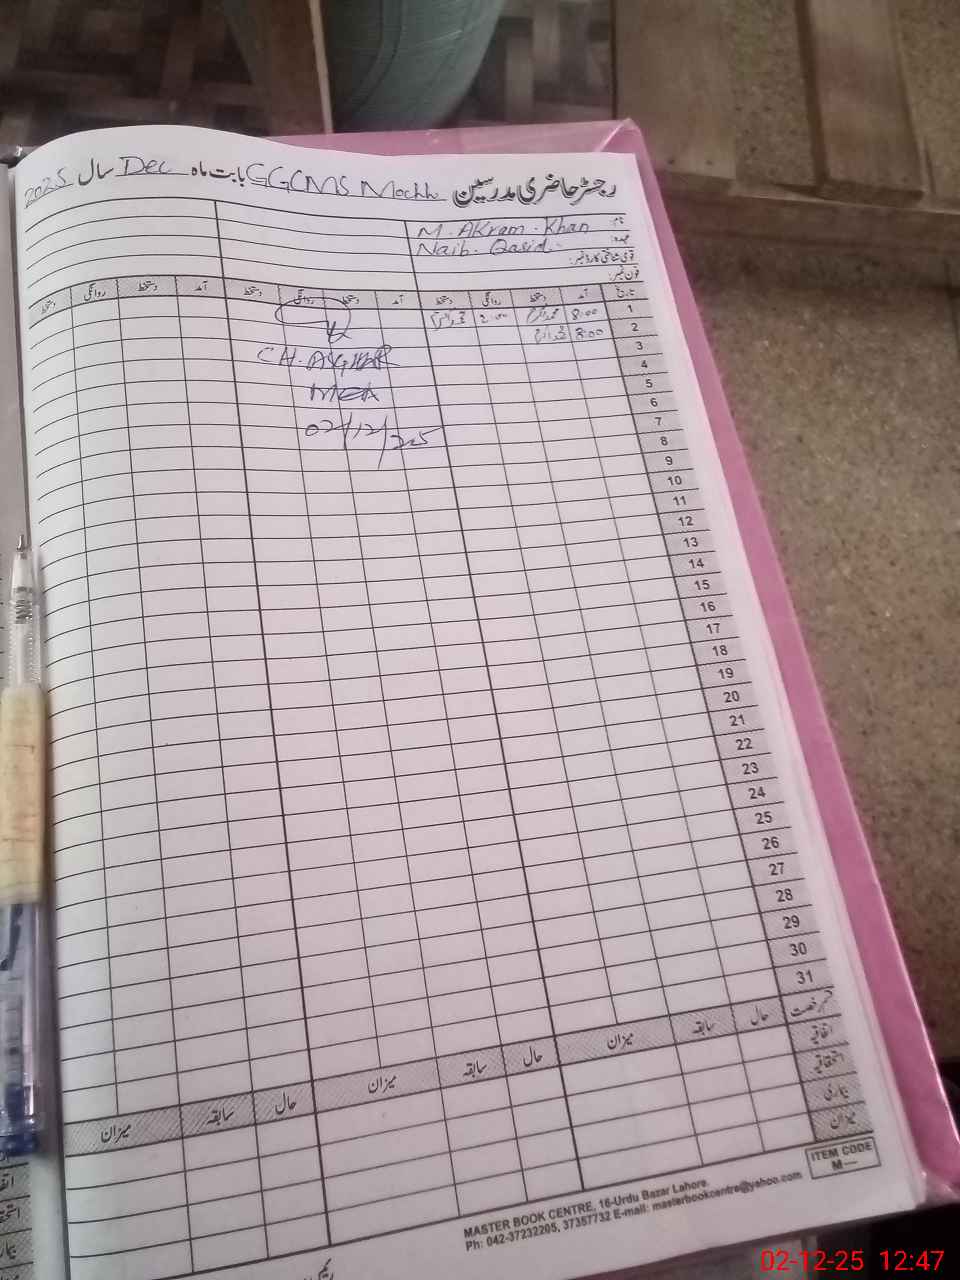 رجسٹر حاضری مدرسین GGCMS Mochh بابت ماہ Dec سال 2025
نام: M. Akram Khan
عہدہ: Naib Qasid
قومی شناختی کارڈ نمبر:
فون نمبر:
تاریخ آمد دستخط روانگی دستخط آمد دستخط روانگی دستخط آمد دستخط روانگی دستخط
1 8:00 محمد اکرم 2:00 محمد اکرم
2 8:00 محمد اکرم
3
4
5
6
7
8
9
10
11
12
13
14
15
16
17
18
19
20
21
22
23
24
25
26
27
28
29
30
31
CH. ASGHAR
MEA
02/12/25
قسم رخصت حال سابقہ میزان حال سابقہ میزان حال سابقہ میزان
اتفاقیہ
استحقاقیہ
بیماری
میزان
ITEM CODE
M—
MASTER BOOK CENTRE, 16-Urdu Bazar Lahore.
Ph: 042-37232205, 37357732 E-mail: masterbookcentre@yahoo.com
02-12-25 12:47